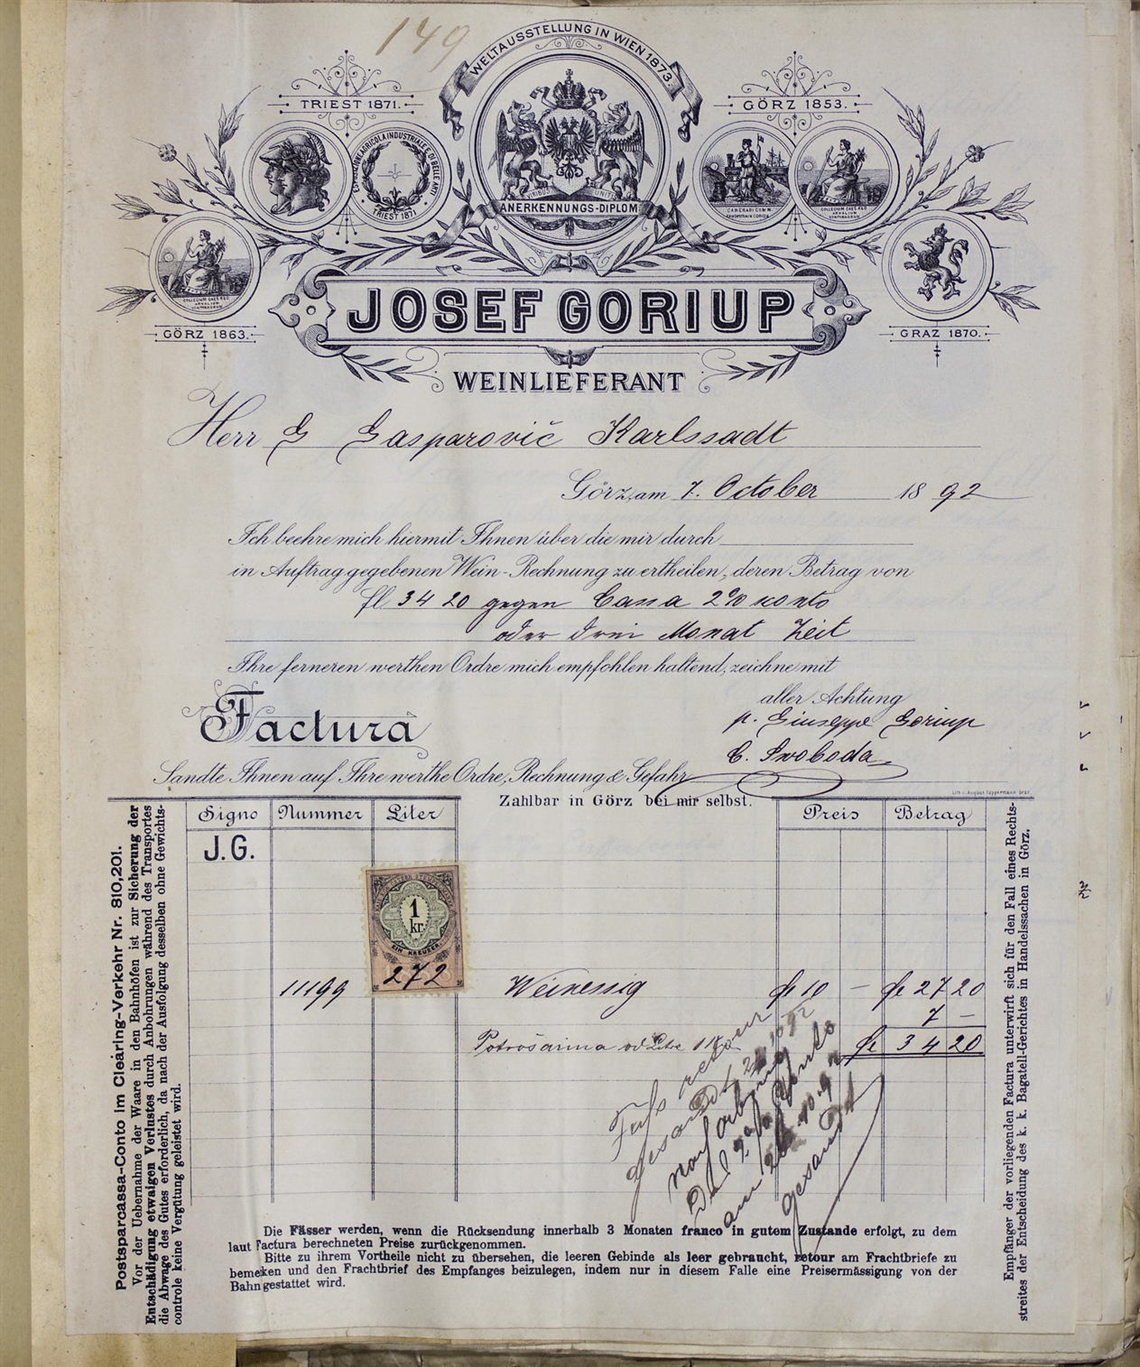 149
WELTAUSSTELLUNG IN WIEN 1873.
TRIEST 1871.
GÖRZ 1853.
TRIEST 1871
ANERKENNUNGS-DIPLOM
GÖRZ 1863.
GRAZ 1870.
JOSEF GORIUP
WEINLIEFERANT
Herr G Gasparovič Karlssadt
Görz, am 7. October 1892
Ich beehre mich hiermit Ihnen über die mir durch
in Auftrag gegebenen Wein-Rechnung zu ertheilen, deren Betrag von
fl 34 20 gegen Cassa 2% konto
oder drei Monat Zeit
Ihre ferneren werthen Ordre mich empfohlen haltend, zeichne mit
aller Achtung
p. Giuseppe Goriup
C. Svoboda
Factura
Sandte Ihnen auf Ihre werthe Ordre, Rechnung & Gefahr
Zahlbar in Görz bei mir selbst.
Signo Nummer Liter Preis Betrag
J.G.
1 kr.
EIN KREUZER
11199 272 Weinessig fl 10 — fl 27 20
7 —
fl 34 20
Fass retour
gesandt
gesandt
Die Fässer werden, wenn die Rücksendung innerhalb 3 Monaten franco in gutem Zustande erfolgt, zu dem
laut Factura berechneten Preise zurückgenommen.
Bitte zu ihrem Vortheile nicht zu übersehen, die leeren Gebinde als leer gebraucht, retour am Frachtbriefe zu
bemerken und den Frachtbrief des Empfanges beizulegen, indem nur in diesem Falle eine Preisermässigung von der
Bahn gestattet wird.
Postsparcassa-Conto im Clearing-Verkehr Nr. 810,201.
Vor der Uebernahme der Waare in den Bahnhöfen ist zur Sicherung der
Entschädigung etwaigen Verlustes durch Anbohrungen während des Transportes
die Abwage des Gutes erforderlich, da nach der Ausfolgung desselben ohne Gewichts-
controle keine Vergütung geleistet wird.
Empfänger der vorliegenden Factura unterwirft sich für den Fall eines Rechts-
streites der Entscheidung des k. k. Bagatell-Gerichtes in Handelssachen in Görz.